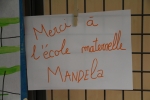 Merci à
l'école maternelle
MANDELA